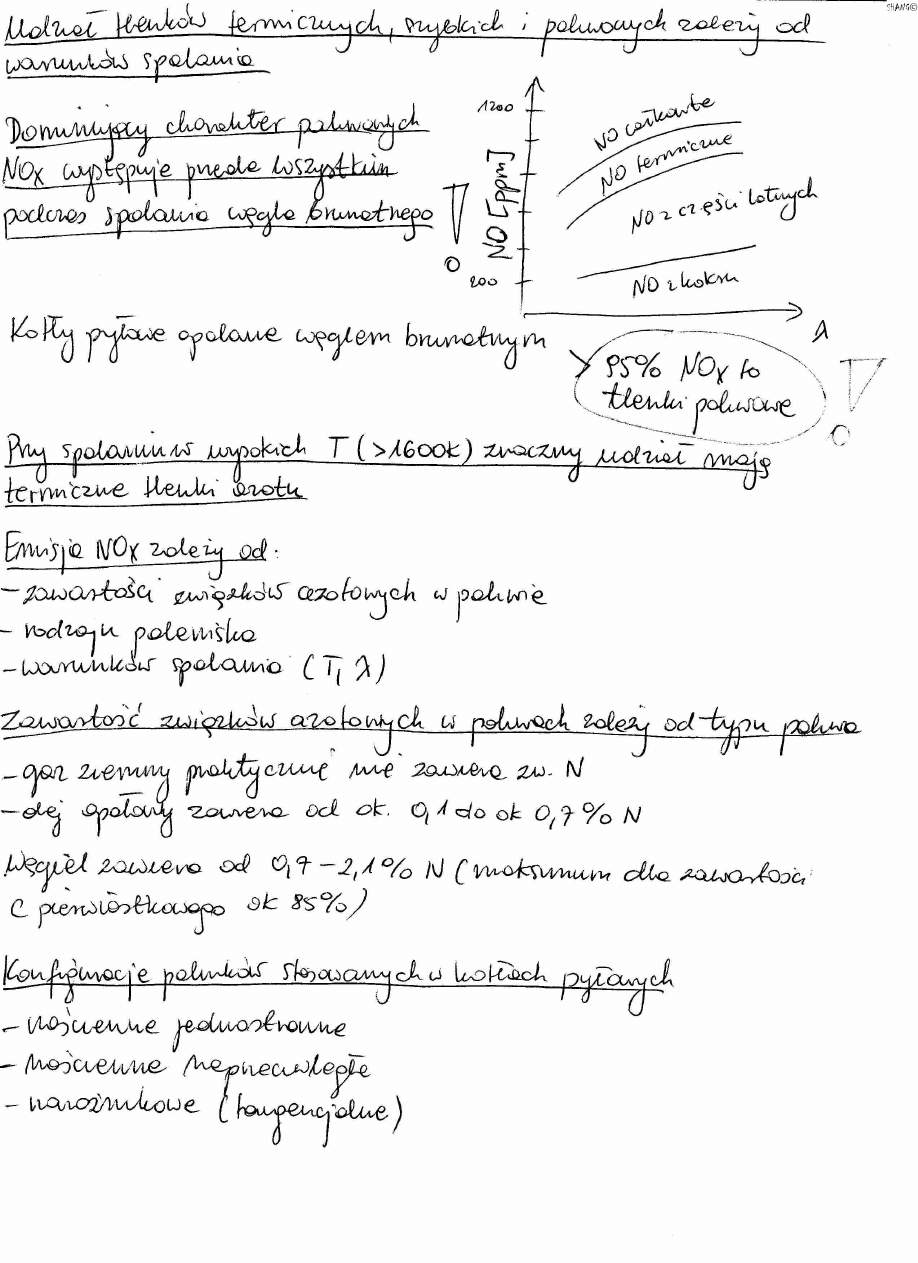 SHANG©
Udział tlenków termicznych, szybkich i paliwowych zależy od
warunków spalania
Dominujący charakter paliwowych
NOx występuje przede wszystkim
podczas spalania węgla brunatnego
1200
NO [ppm]
200
NO całkowite
NO termiczne
NO z części lotnych
NO z koksu
λ
Kotły pyłowe opalane węglem brunatnym
95% NOx to
tlenki paliwowe
Przy spalaniu w wysokich T (>1600K) znaczny udział mają
termiczne tlenki azotu
Emisja NOx zależy od:
- zawartości związków azotowych w paliwie
- rodzaju paleniska
- warunków spalania (T, λ)
Zawartość związków azotowych w paliwach zależy od typu paliwa
- gaz ziemny praktycznie nie zawiera zw. N
- olej opałowy zawiera od ok. 0,1 do ok 0,7% N
Węgiel zawiera od 0,7-2,1% N (maksimum dla zawartości
C pierwiastkowego ok 85%)
Konfiguracje palników stosowanych w kotłach pyłowych
- naścienne jednostronne
- naścienne naprzeciwległe
- narożnikowe (tangencjalne)